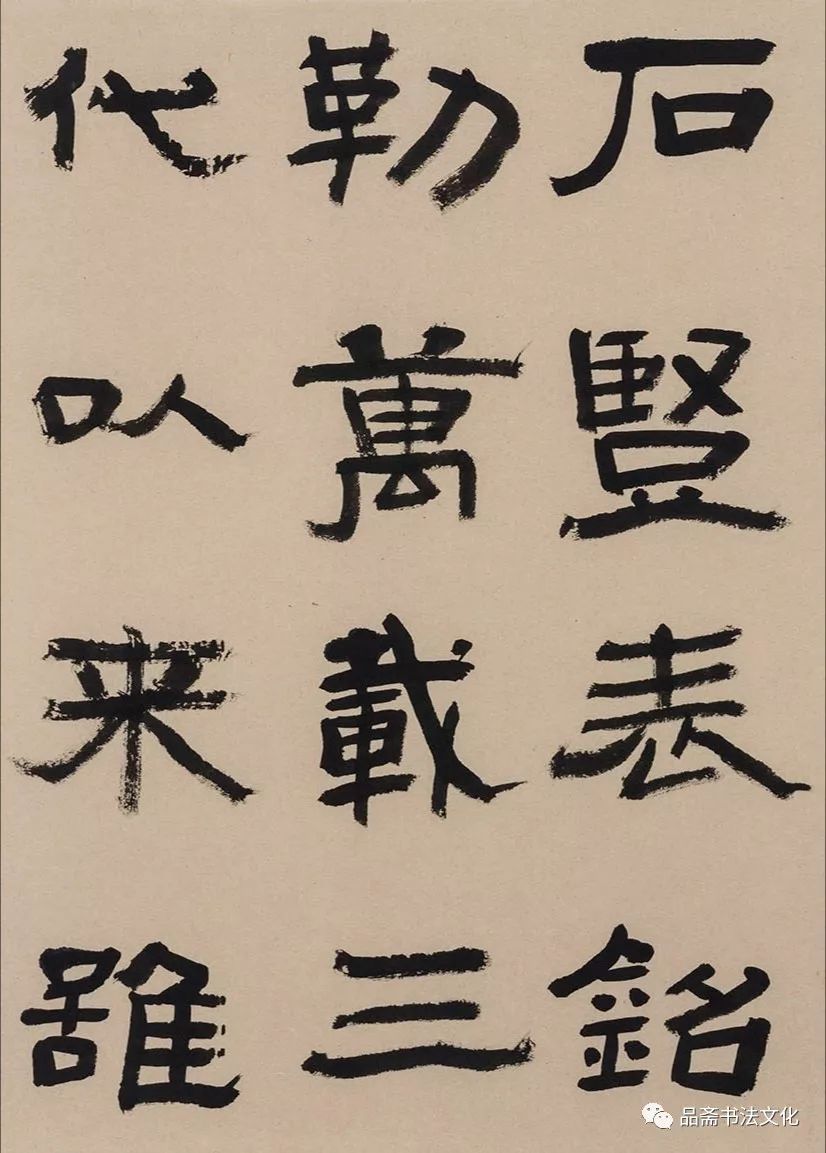 石豎表銘
勒萬載三
代以来雖
品斋书法文化